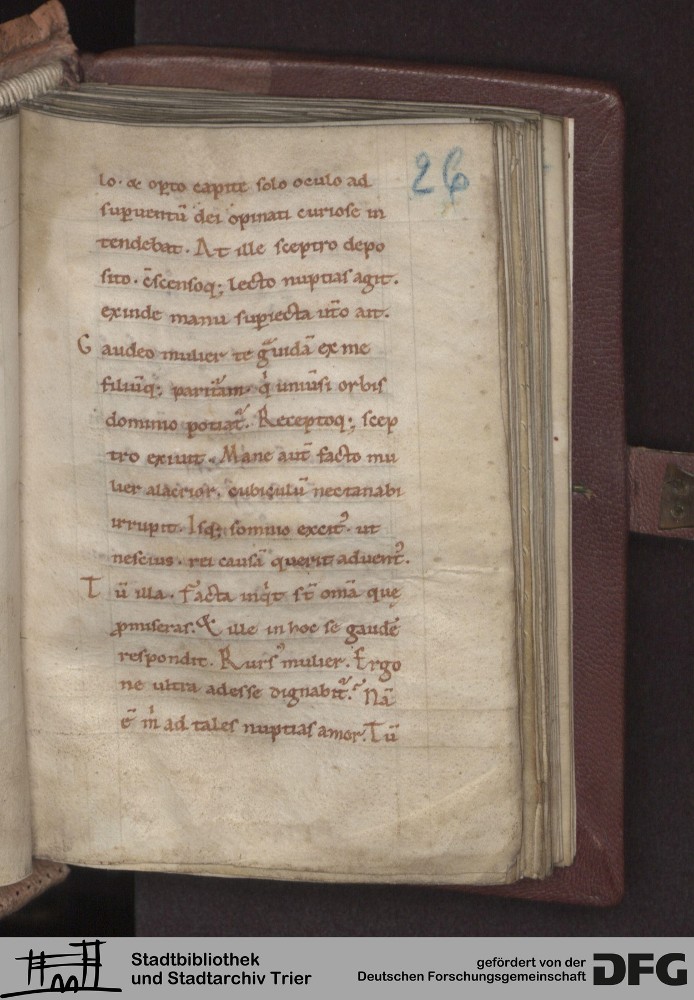 lo · & opto capite solo oculo ad
26
supuentū dei opinati curiose in
tendebat · At ille sceptro depo
sito · c̄scensoq; lecto nuptias agit ·
exinde manu supiecta uto ait ·
Gaudeo mulier te g̃uidā ex me
filiūq; pariturā q uniusi orbis
domino potiat̃ · Receptoq; scep
tro exiuit · Mane aut̄ facto mu
lier alacrior · cubiculū nectanabi
irrupit · Isq; somno excit9 · ut
nescius · rei causā querit aduent9 ·
Tū illa · facta inqit st̄ om̄a que
pmiseras · & ille in hoc se gaudē
respondit · Rurs9 mulier · Ergo
ne ultra adesse dignabit̃ · Nā
ē m ad tales nuptias amor · Tū
Stadtbibliothek
und Stadtarchiv Trier
gefördert von der
Deutschen Forschungsgemeinschaft
DFG